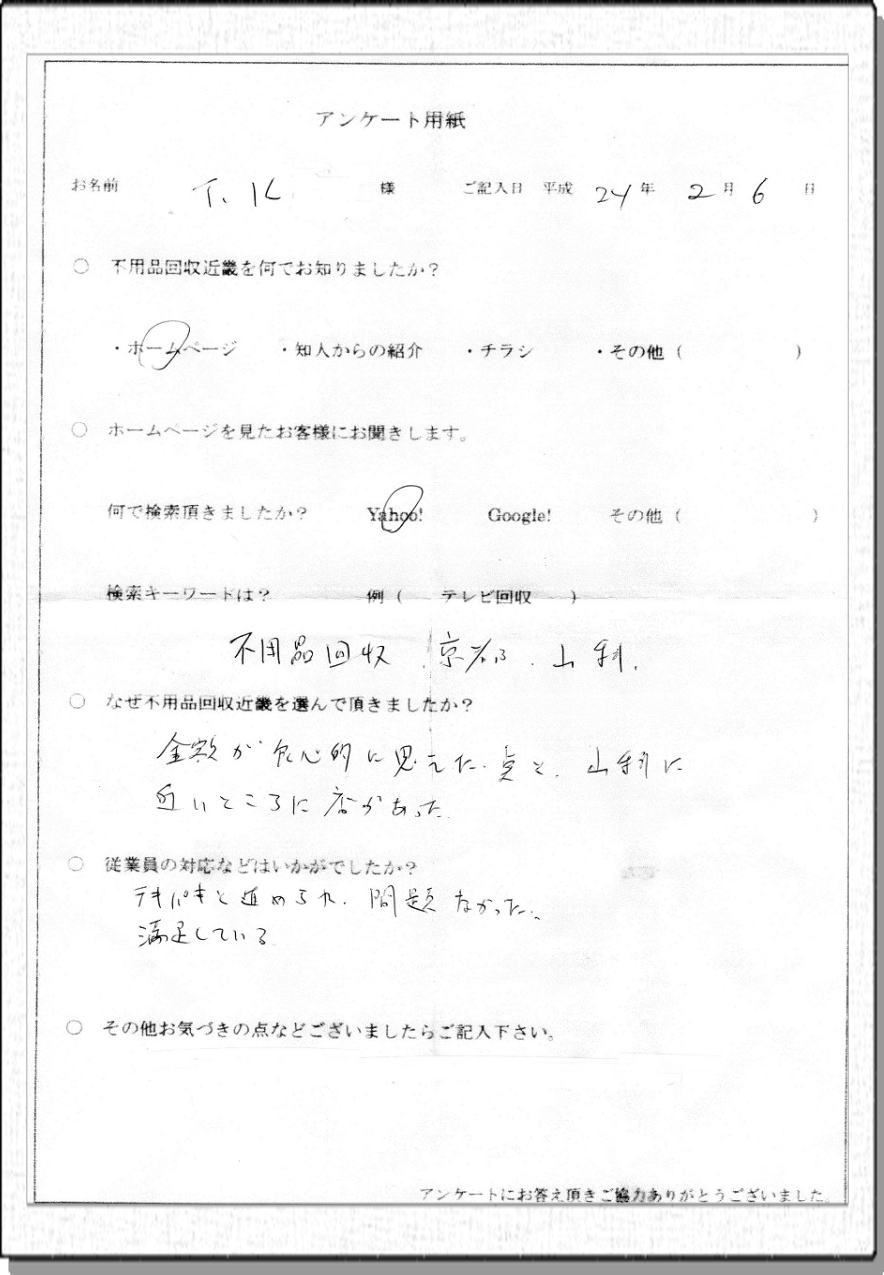 アンケート用紙
お名前 T. K 様 ご記入日 平成 24 年 2 月 6 日
○ 不用品回収近畿を何でお知りましたか？
・ホームページ ・知人からの紹介 ・チラシ ・その他（ ）
○ ホームページを見たお客様にお聞きします。
何で検索頂きましたか？ Yahoo! Google! その他（ ）
検索キーワードは？ 例（ テレビ回収 ）
不用品回収 . 京都 . 山科.
○ なぜ不用品回収近畿を選んで頂きましたか？
金額が 良心的に思えた 点と、山科に
近いところに 店があった.
○ 従業員の対応などはいかがでしたか？
テキパキと進められ、問題なかった、
満足している
○ その他お気づきの点などございましたらご記入下さい。
アンケートにお答え頂きご協力ありがとうございました。